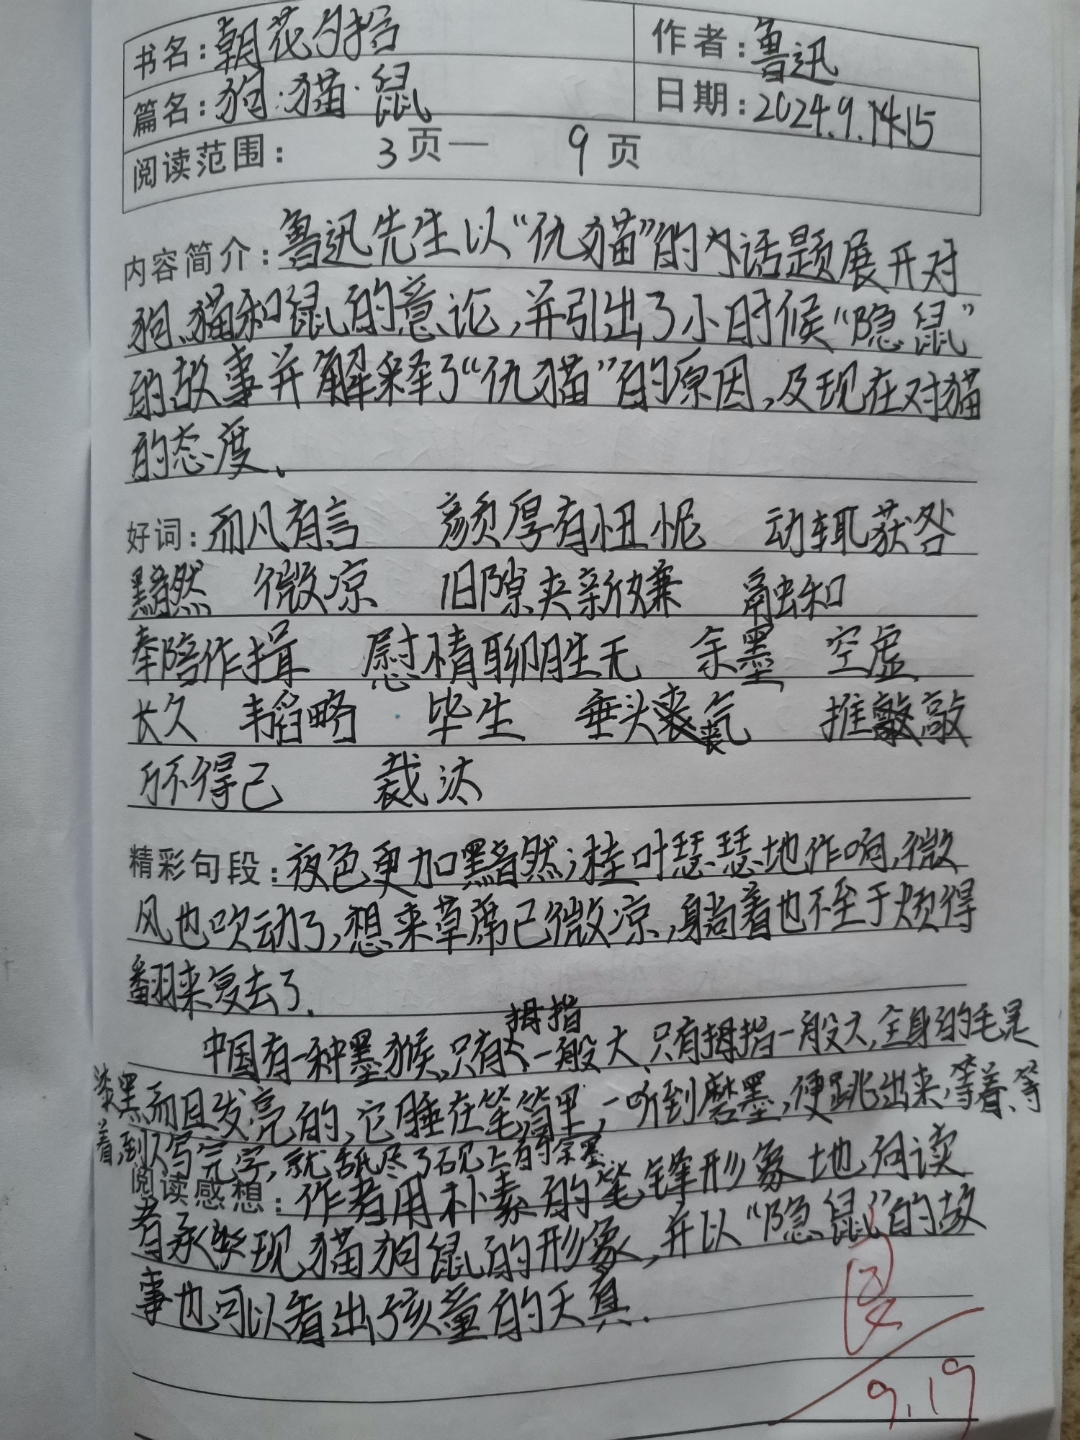 书名:朝花夕拾 作者:鲁迅
篇名:狗·猫·鼠 日期:2024.9.14.15
阅读范围: 3页— 9页
内容简介:鲁迅先生以“仇猫”的为话题展开对
狗、猫和鼠的意论,并引出了小时候“隐鼠”
的故事并解释了“仇猫”的原因,及现在对猫
的态度、
好词:而凡有言 颜厚有忸怩 动辄获咎
黯然 微凉 旧隙夹新嫌 融和
奉陪作揖 慰情聊胜无 余墨 空虚
长久 韬略 毕生 垂头丧气 推敲
不得已 裁汰
精彩句段:夜色更加黯然;桂叶瑟瑟地作响,微
风也吹动了,想来草席已微凉,躺着也不至于烦得
翻来复去了.
拇指
中国有一种墨猴,只有一般大、只有拇指一般大,全身的毛是
漆黑而且发亮的,它睡在笔筒里,一听到磨墨,便跳出来,等着、等
着,到人写完字,就舐尽了砚上的余墨
阅读感想:作者用朴素的笔锋形象地向读
者承现猫狗鼠的形象,并以“隐鼠”的故
事也可以看出了孩童的天真.
9.19